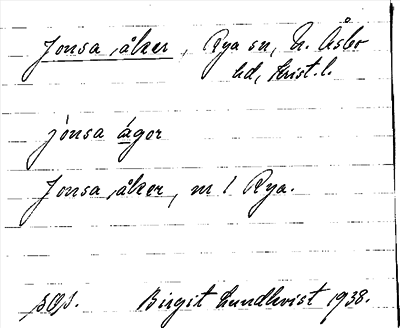 Jonsa,åker, Rya sn, N. Åsbo
hd, Krist. l.
jónsa ágor
Jonsa,åker, m 1 Rya.
Birgit Lundkvist 1938.